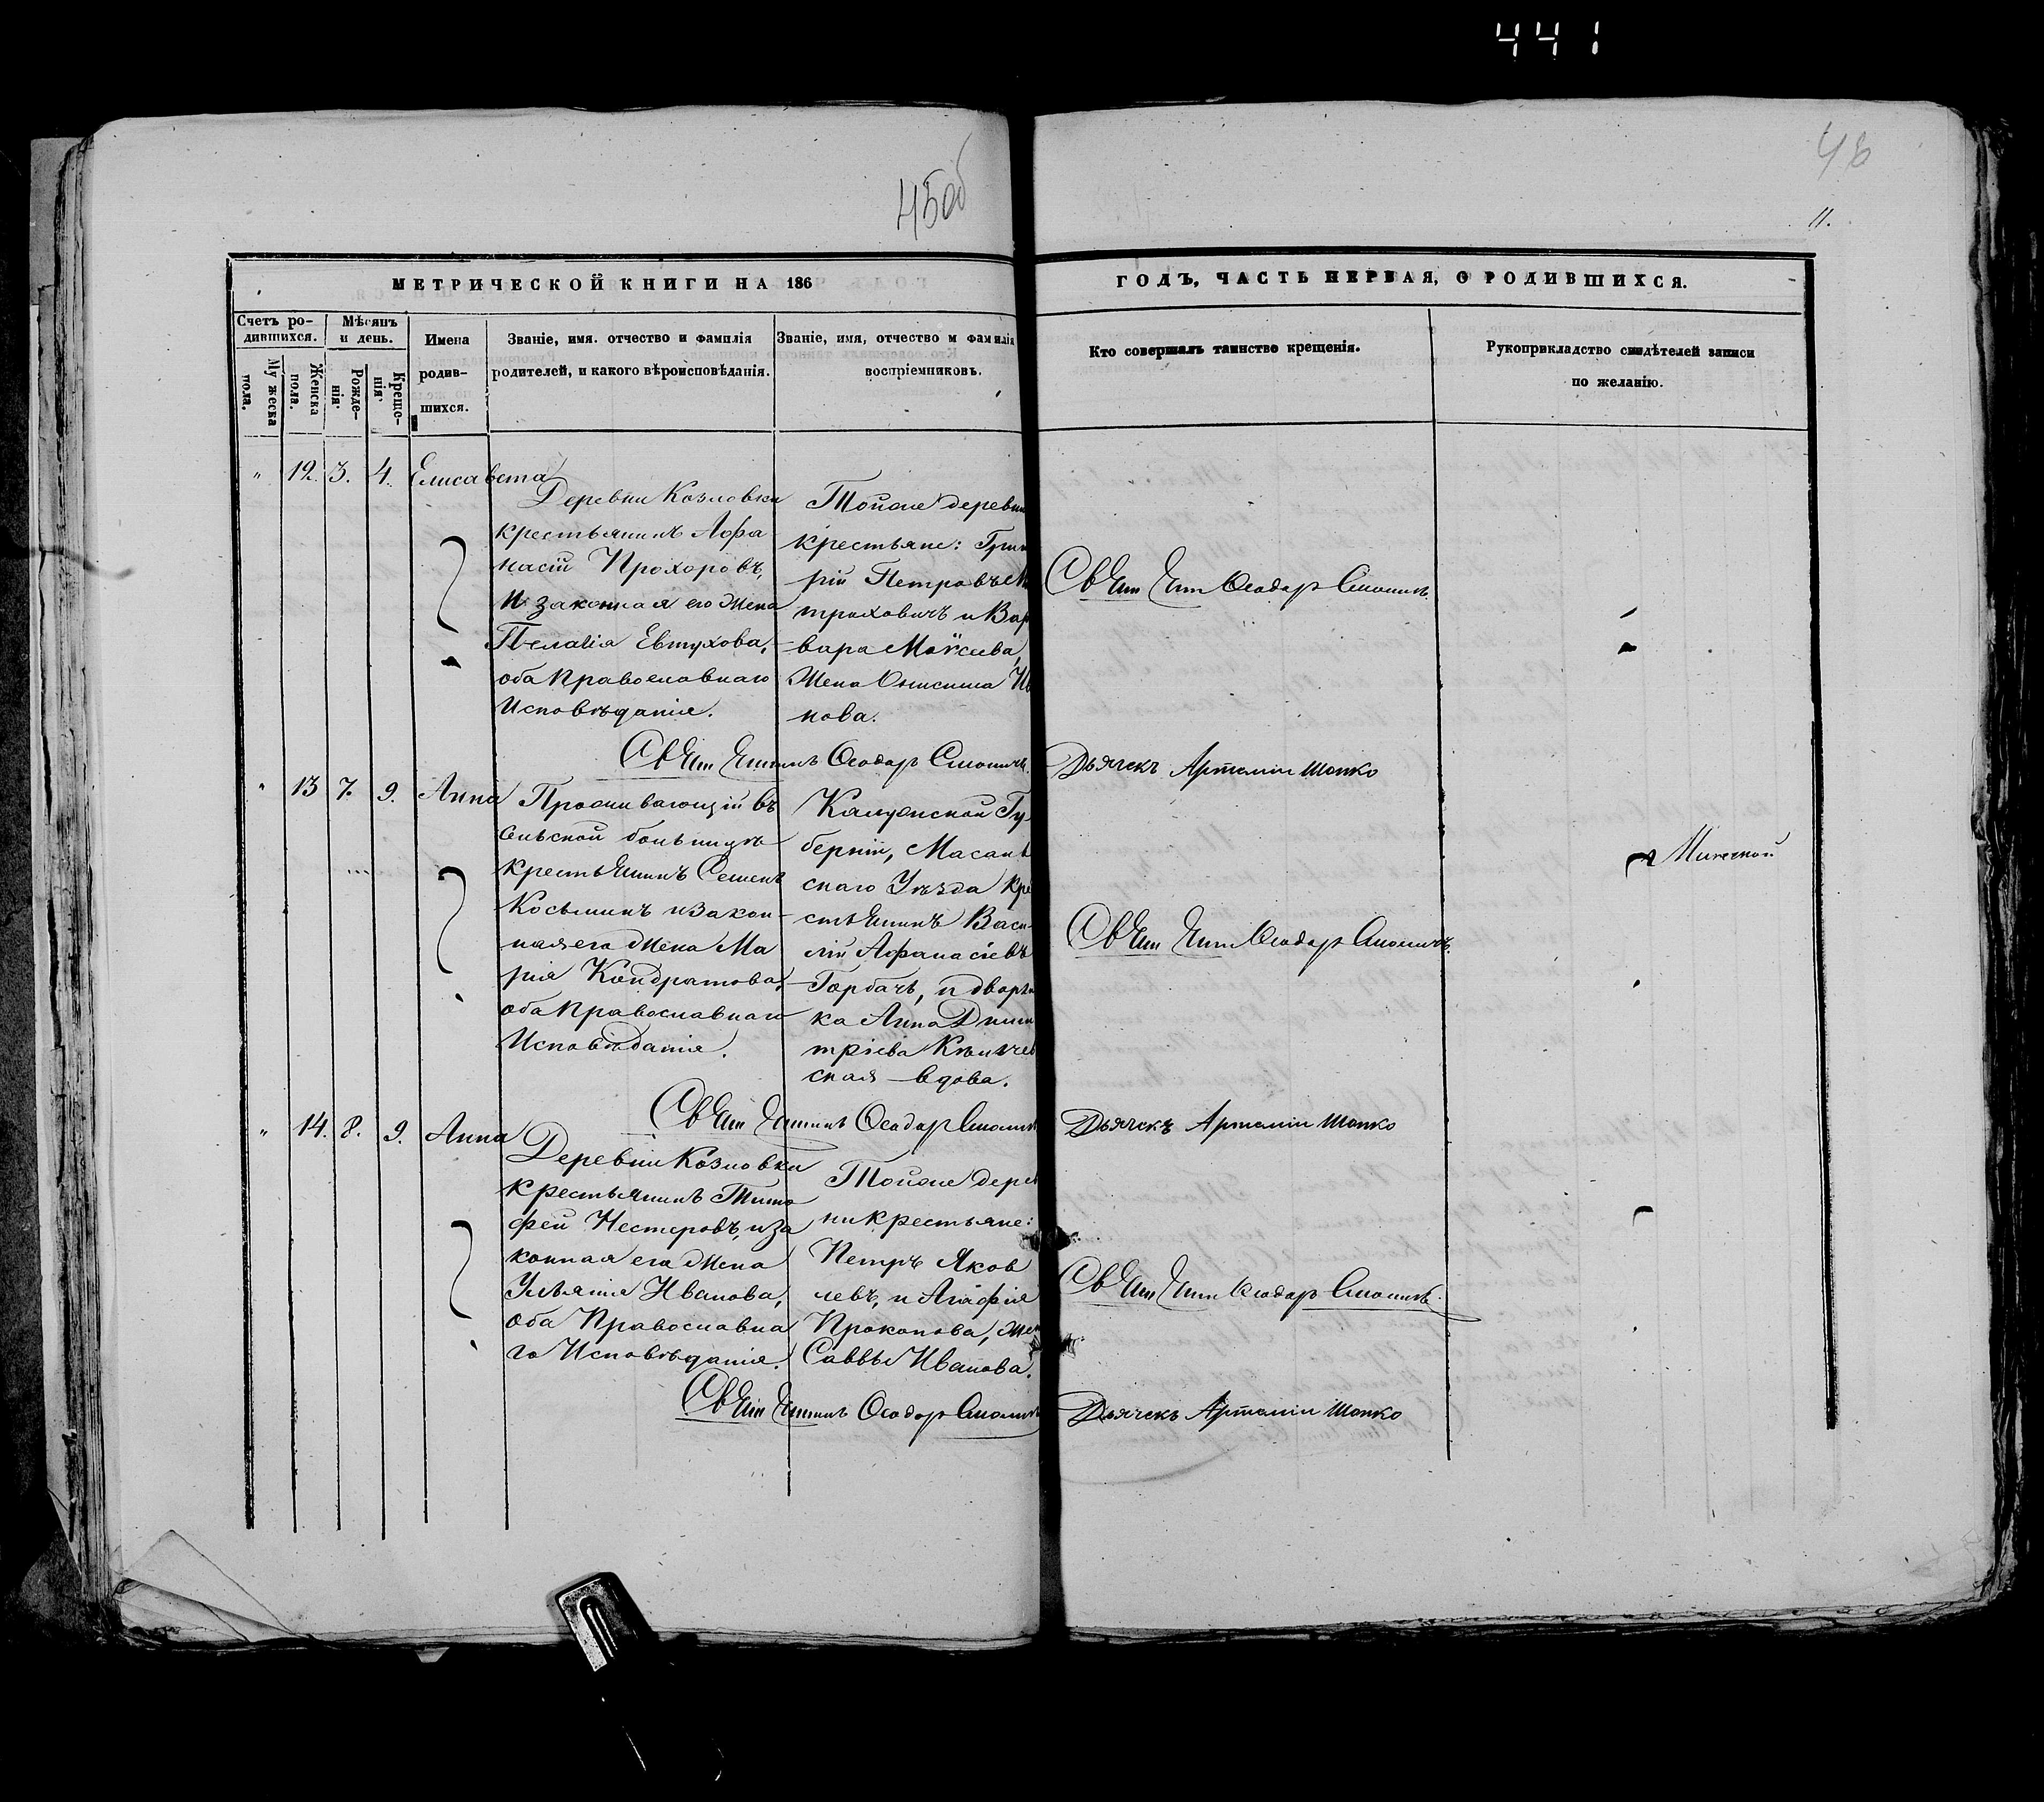 441
45об
46
11.
МЕТРИЧЕСКОЙ КНИГИ НА 186
ГОДЪ, ЧАСТЬ ПЕРВАЯ, О РОДИВШИХСЯ.
Счетъ ро-
дившихся.
Мѣсяцъ
и день.
Му жеска
пола.
Женска
пола.
Рожде-
нія.
Креще-
нія.
Имена
родив-
шихся.
Званіе, имя. отчество и фамилія
родителей, и какого вѣроисповѣданія.
Званіе, имя, отчество и фамилія
воспріемниковъ.
Кто совершалъ таинство крещенія.
Рукоприкладство свидѣтелей записи
по желанію.
" 12. 3. 4. Елисавета
Деревни Козловки
крестьянинъ Афа
насій Прохоровъ,
и законная его жена
Пелагія Евтухова,
оба Православнаго
Исповѣданія.
Тойже деревни
крестьяне: Григо
рій Петровъ
троховичъ и Вар
вара Моѵсеева,
жена Онисима
нова.
Священникъ Ѳеодоръ
Священникъ Ѳеодоръ
Дьячекъ Артемій Шопко
" 13 7. 9. Анна
Проживающій въ
больницѣ
крестьянинъ Семенъ
Косьминъ и закон-
ная его жена Ма
рія Кондратова,
оба Православнаго
Исповѣданія.
Калужской Гу-
берніи, Масаль
скаго Уѣзда кре
стьянинъ Васи-
лій Афанасіевъ
Горбачъ, и дворян
ка Анна Дими
тріева
ская - вдова.
Священникъ Ѳеодоръ
Священникъ Ѳеодоръ
Дьячекъ Артемій Шопко
" 14. 8. 9. Анна
Деревни Козловки
крестьянинъ Тимо
фей Нестеровъ, и за
конная его жена
Ульянія Иванова,
оба Православна
го Исповѣданія.
Тойже дерев
ни крестьяне:
Петръ Яков
левъ, и Агафія
Прокопова, жена
Саввы Иванова.
Священникъ Ѳеодоръ
Священникъ Ѳеодоръ
Дьячекъ Артемій Шопко